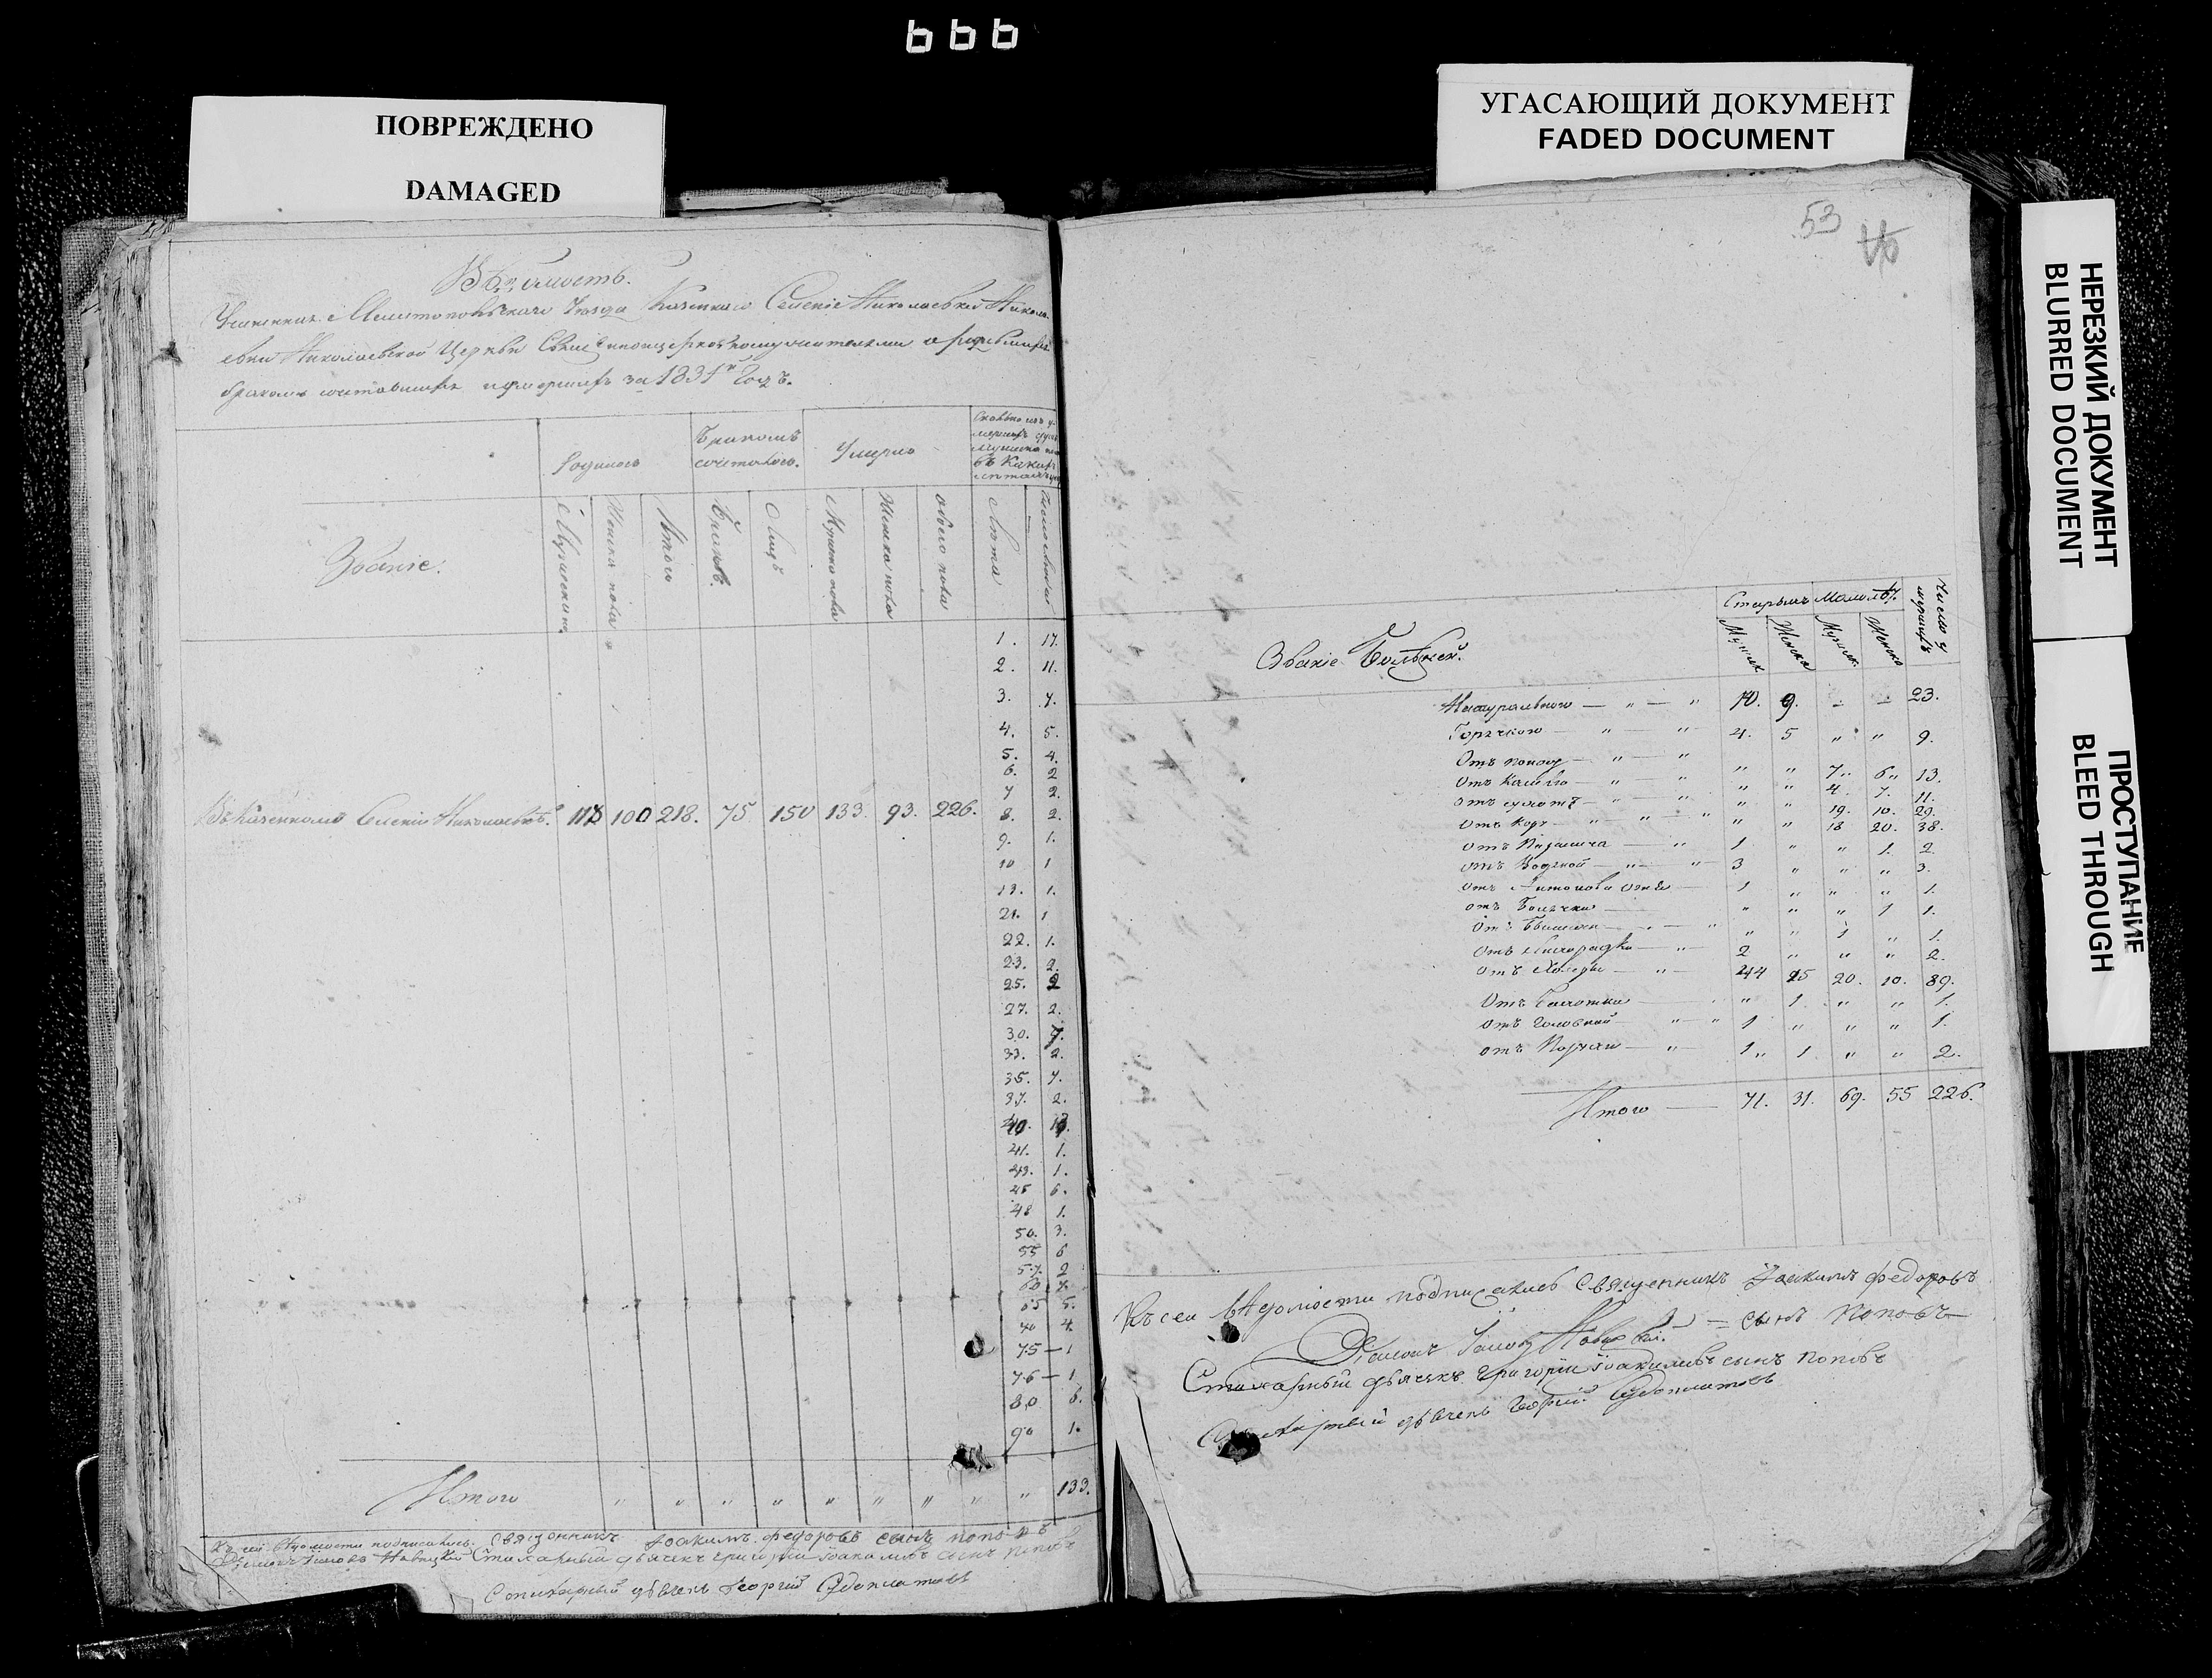 ььь
ПОВРЕЖДЕНО
DAMAGED
УГАСАЮЩИЙ ДОКУМЕНТ
FADED DOCUMENT
НЕРЕЗКИЙ ДОКУМЕНТ
BLURRED DOCUMENT
ПРОСТУПАНИЕ
BLEED THROUGH
Вѣдомость.
Учиненная Мелитопольскаго Уезда Казеннаго Селенія Николаевки Никола-
евки Николаевской Церкви
бракомъ умершихъ за 1831й Годъ.
Родилось
Бракомъ
сочеталось.
Умерло
Званіе.
Мужеска
Женска пола
Итого
Браковъ.
Лицъ
Мужеска пола
Женска пола
обоего пола
Лѣта
1. 17.
2. 11.
3. 7.
4. 5.
5. 4.
6. 2
7 2.
Въ Казенномъ Селеніи Николаевкѣ. 118 100 218. 75 150 133. 93. 226. 8. 2.
9. 1.
10 1
13. 1.
21. 1
22. 1.
23. 2.
25. 2
27. 2.
30. 7.
33. 2.
35. 7.
37. 2.
40. 13.
41. 1.
43. 1.
45 6.
48 1.
50. 3.
55 6
57. 2
60 7.
65 5.
70 4.
75 — 1
76 — 1
80 6.
90 1.
Итого " " " " " " " " " 133.
Къ сей Вѣдомости подписались Священникъ Іоакимъ федоровъ сынъ поповъ
Діаконъ Іаковъ Стихарный дьячекъ григорій Іоакимовъ сынъ поповъ
Стихарный дьячекъ Георгій
53
Званіе Болѣзней.
Старымъ
Мужеск
Женска
Мужеск.
Женска
Число у
мершихъ
Натуральною — " — " 10. 9. 23.
Горячкою — " — " 4. 5 " " 9.
Отъ поносу — " — " " " 7 " 6 " 13.
Отъ Кашлю — " — " " " 4. 7. 11.
отъ сухотъ — " " " 19. 10. 29.
отъ Кору — " — " — " " " 18 20. 38.
отъ 1 " " 1. 2
отъ Водяной — " — " 3 " " " 3.
отъ Антонова Огня — 1 " " " 1.
отъ — " " " 1 1.
отъ — " " 1 " 1.
отъ Лихорадки — " 2 " " " 2.
отъ Холеры — " — 44 15 20. 10. 89.
отъ — " 1. " " 1.
отъ Головной — " — " 1 " " " 1.
отъ — " — 1 " 1. " " 2.
Итого — 71. 31. 69. 55 226.
Къ сей вѣдомости подписались Священникъ Іоакимъ федоровъ
сынъ поповъ
Діаконъ Іаковъ
Стихарный дьячекъ григорій Іоакимовъ сынъ поповъ
Стихарный дьячекъ Георгій